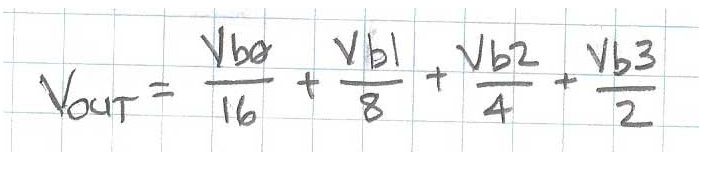 VOUT = Vb0/16 + Vb1/8 + Vb2/4 + Vb3/2